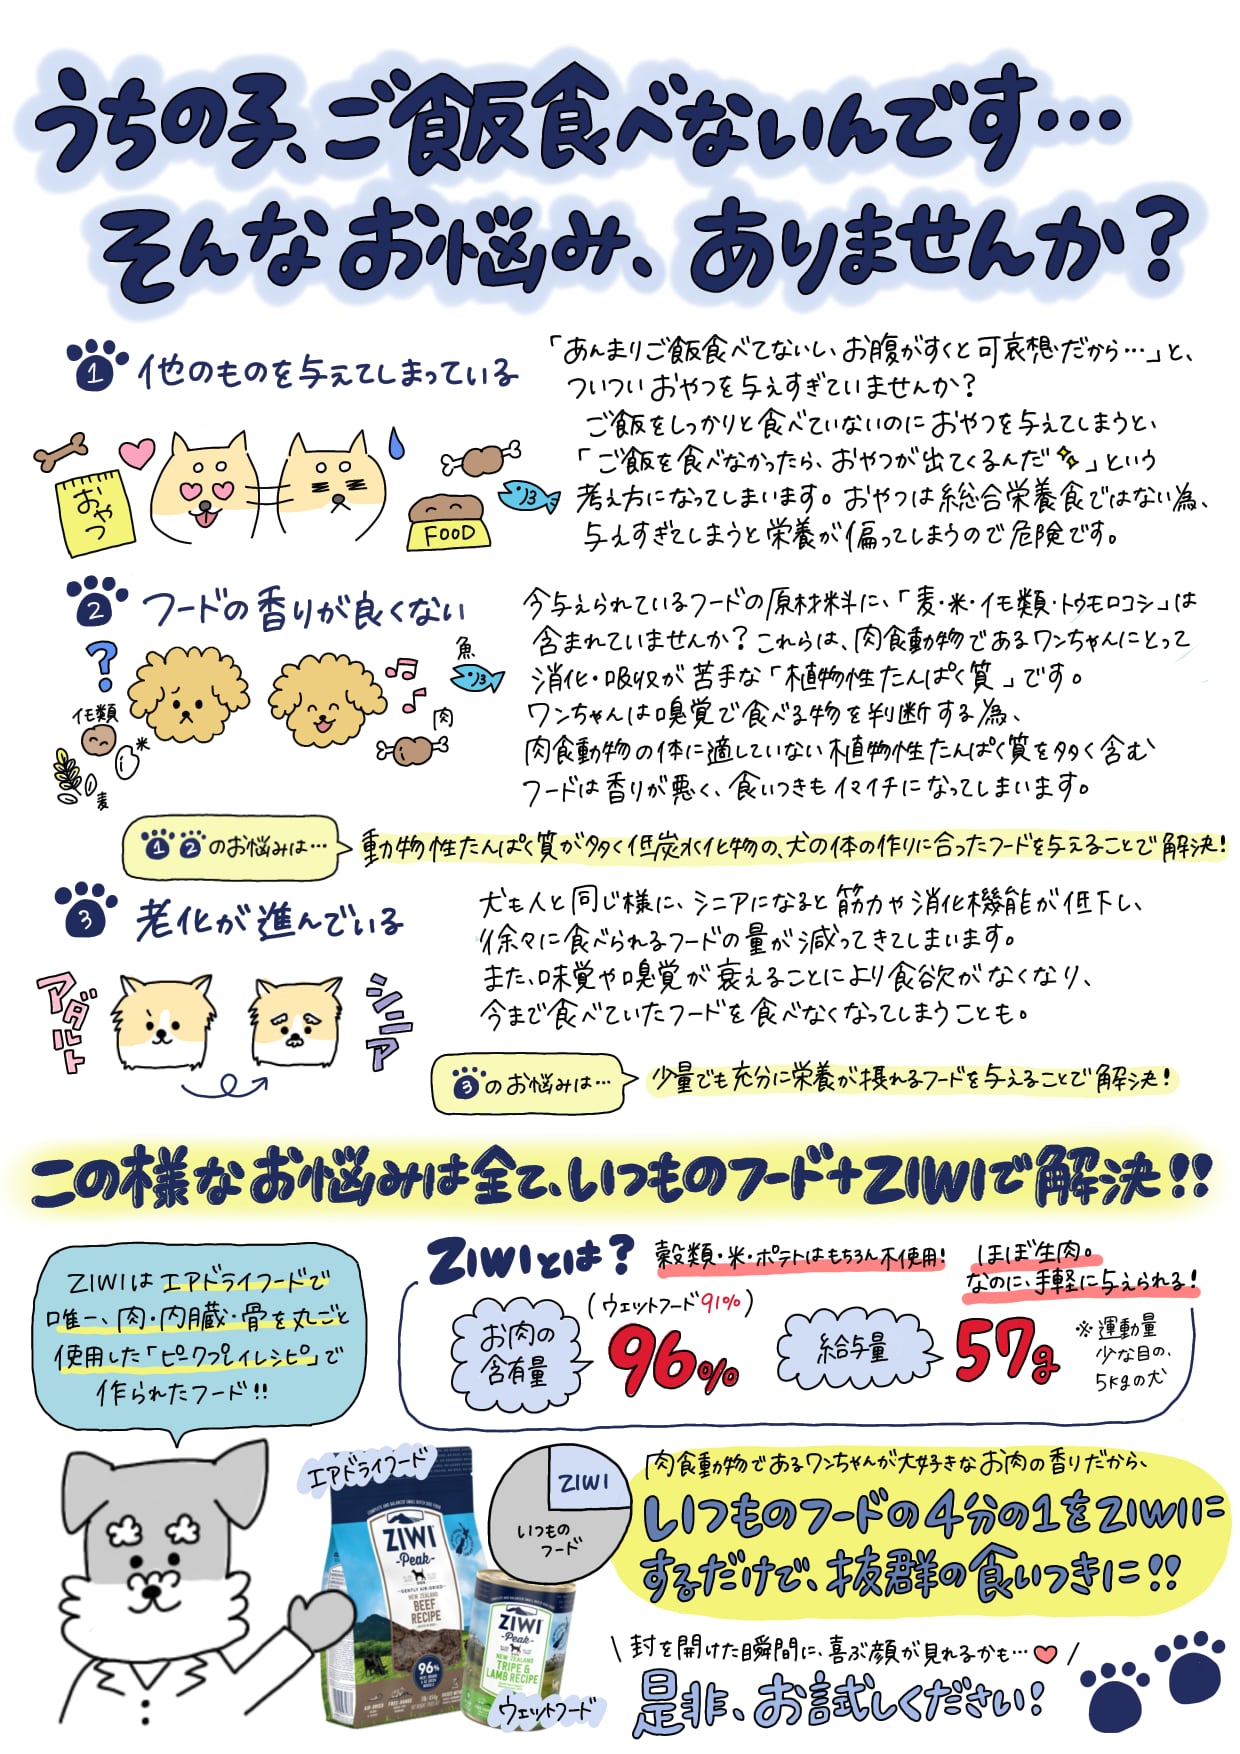 うちの子、ご飯食べないんです…
そんなお悩み、ありませんか？
1 他のものを与えてしまっている
「あんまりご飯食べてないし、お腹がすくと可哀想だから…」と、
ついついおやつを与えすぎていませんか？
ご飯をしっかりと食べていないのにおやつを与えてしまうと、
「ご飯を食べなかったら、おやつが出てくるんだ✨」という
考え方になってしまいます。おやつは総合栄養食ではない為、
与えすぎてしまうと栄養が偏ってしまうので危険です。
おやつ
FOOD
2 フードの香りが良くない
今与えられているフードの原材料に、「麦・米・イモ類・トウモロコシ」は
含まれていませんか？これらは、肉食動物であるワンちゃんにとって
消化・吸収が苦手な「植物性たんぱく質」です。
ワンちゃんは嗅覚で食べる物を判断する為、
肉食動物の体に適していない植物性たんぱく質を多く含む
フードは香りが悪く、食いつきもイマイチになってしまいます。
?
イモ類
米
麦
魚
肉
1 2 のお悩みは…
動物性たんぱく質が多く低炭水化物の、犬の体の作りに合ったフードを与えることで解決！
3 老化が進んでいる
犬も人と同じ様に、シニアになると筋力や消化機能が低下し、
徐々に食べられるフードの量が減ってきてしまいます。
また、味覚や嗅覚が衰えることにより食欲がなくなり、
今まで食べていたフードを食べなくなってしまうことも。
アダルト
シニア
3 のお悩みは…
少量でも充分に栄養が摂れるフードを与えることで解決！
この様なお悩みは全て、いつものフード+ZIWIで解決！！
ZIWIは エアドライフードで
唯一、肉・内臓・骨を丸ごと
使用した「ピークプレイレシピ」で
作られたフード！！
ZIWIとは？
穀類・米・ポテトはもちろん不使用！
ほぼ生肉。
なのに、手軽に与えられる！
お肉の
含有量
(ウェットフード91%)
96%
給与量
57g
※運動量
少な目の、
5kgの犬
エアドライフード
ZIWI
Peak
GENTLY AIR-DRIED
NEW ZEALAND
BEEF
RECIPE
96%
ZIWI
Peak
NEW ZEALAND
TRIPE &
LAMB RECIPE
ウェットフード
ZIWI
いつもの
フード
肉食動物であるワンちゃんが大好きなお肉の香りだから、
いつものフードの4分の1をZIWIに
するだけで、抜群の食いつきに！！
\ 封を開けた瞬間に、喜ぶ顔が見れるかも…♥ /
是非、お試しください！